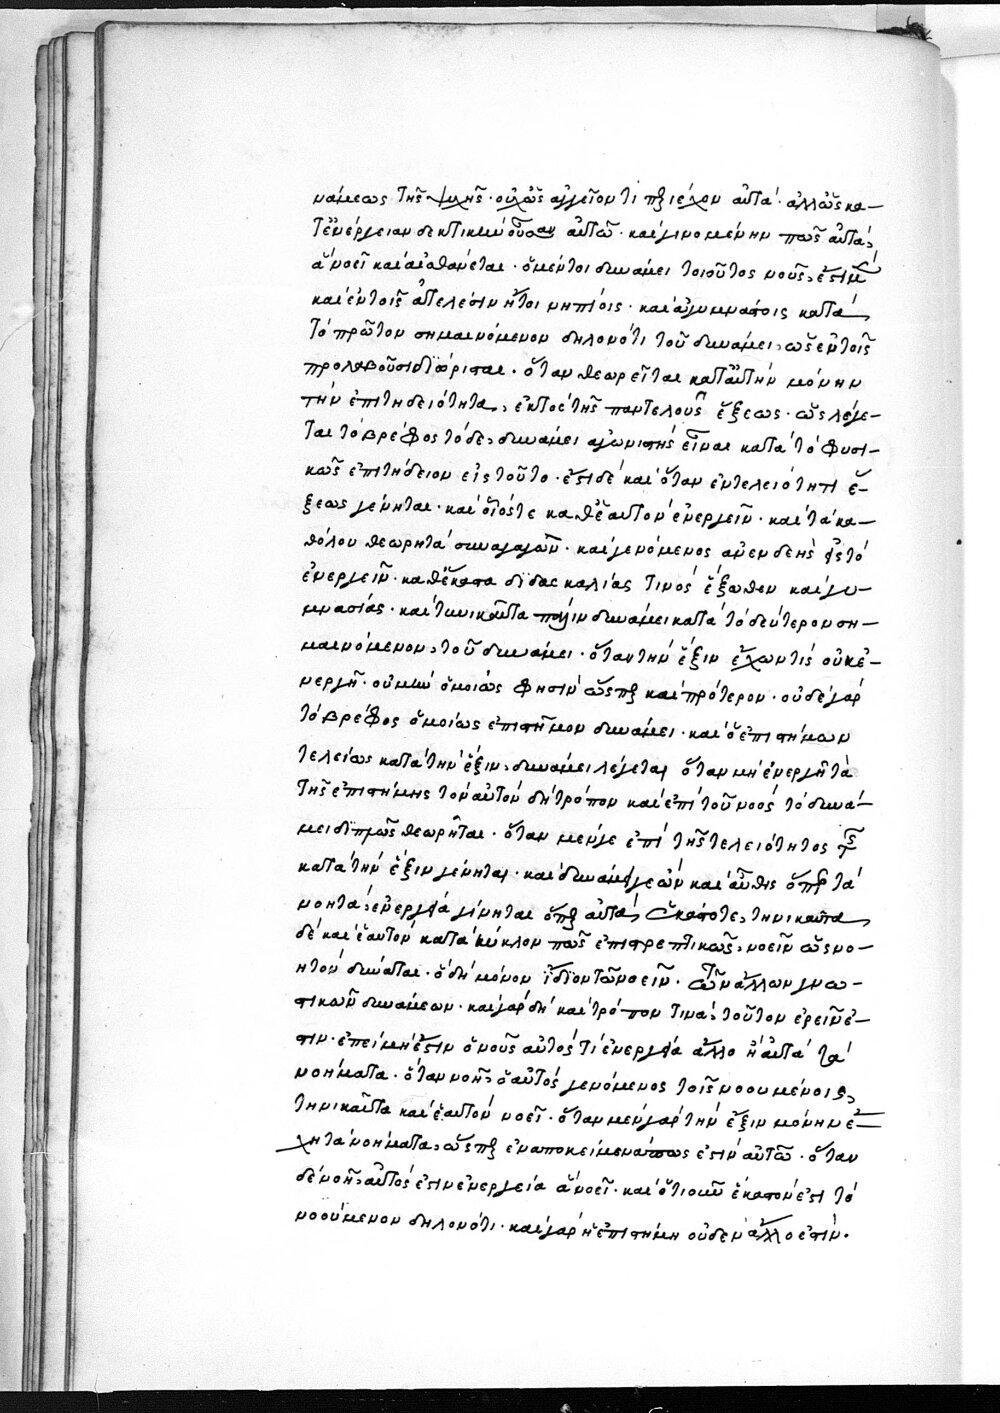 νάμεως τῆς ψυχῆς· οὐχ ὡς ἀγγεῖον τι περιέχον αὐτά· ἀλλ' ὡς κα-
τ' ἐνέργειαν δεκτικὴν οὖσαν αὐτῶν· καὶ γινομένην πως αὐτὰ,
ἃ νοεῖ καὶ αἰσθάνεται· ὁ μέντοι δυνάμει τοιοῦτος νοῦς, ἔστι μὲν
καὶ ἐν τοῖς ἀτελέσιν ἤτοι νηπίοις· καὶ ἀγυμνάστοις κατὰ
τὸ πρῶτον σημαινόμενον δηλονότι τοῦ δυνάμει, ὡς ἐν τοῖς
προλαβοῦσι διώρισται· ὅταν θεωρεῖται κατ' αὐτὴν μόνην
τὴν ἐπιτηδειότητα, ἐκτὸς ἔτι τῆς παντελοῦς ἕξεως· ὡς λέγε-
ται τὸ βρέφος τόδε, δυνάμει ἀγωνιστὴς εἶναι κατὰ τὸ φυσι-
κῶς ἐπιτήδειον εἰς τοῦτο· ἔστι δὲ καὶ ὅταν ἐν τελειότητι ἕ-
ξεως γένηται· καὶ οἷός τε καθ' ἑαυτὸν ἐνεργεῖν· καὶ τὰ κα-
θόλου θεωρητὰ συναγαγὼν· καὶ γενόμενος ἀνενδεὴς εἰς τὸ
ἐνεργεῖν· καθ' ἕκαστα διδασκαλίας τινὸς ἔξωθεν καὶ γυ-
μνασίας· καὶ τηνικαῦτα πάλιν δυνάμει κατὰ τὸ δεύτερον ση-
μαινόμενον, τοῦ δυνάμει· ὅταν τὴν ἕξιν ἔχων τις οὐκ ἐ-
νεργῇ· οὐ μὴν ὁμοίως φησὶν ὥσπερ καὶ πρότερον· οὐδὲ γὰρ
τὸ βρέφος ὁμοίως ἐπιστῆμον δυνάμει· καὶ ὁ ἐπιστήμων
τελείως κατὰ τὴν ἕξιν, δυνάμει λέγεται ὅταν μὴ ἐνεργῇ τὰ
τῆς ἐπιστήμης τὸν αὐτὸν δὴ τρόπον καὶ ἐπὶ τοῦ νοὸς τὸ δυνά-
μει διττῶς θεωρῆται· ὅταν μέν γε ἐπὶ τῆς τελειότητος τῆς
κατὰ τὴν ἕξιν γένηται· καὶ δυνάμει γε ὢν καὶ αὖθις ὅπερ τὰ
νοητὰ, ἐνεργείᾳ γίνηται ὅπερ αὐτὰ ἑκάστοτε, τηνικαῦτα
δὲ καὶ ἑαυτὸν κατὰ κύκλον πως ἐπιστρεπτικῶς, νοεῖν ὡς νο-
ητὸν δύναται· ὃ δὴ μόνον ἴδιον τῶ νοεῖν· τῶν ἄλλων γνω-
στικῶν δυνάμεων· καὶ γὰρ δὴ κατὰ τρόπον τινὰ, τοῦτον ἐρεῖν ἔ-
στιν· ἐπεὶ μὴ ἔστιν ὁ νοῦς αὐτός τι ἐνεργείᾳ ἄλλο ἢ αὐτὰ τὰ
νοήματα· ὅταν νοῇ, ὃ αὐτὸς γενόμενος τοῖς νοουμένοις,
τηνικαῦτα καὶ ἑαυτὸν νοεῖ· ὅταν μὲν γὰρ τὴν ἕξιν μόνην ἔ-
χῃ τὰ νοήματα, ὥσπερ ἐναποκείμενά πως ἐστὶν αὐτῶ· ὅταν
δὲ νοῇ, αὐτός ἐστιν ἐνεργεία ἃ νοεῖ· καὶ ὁτιοῦν ἕκαστόν ἐστι τὸ
νοούμενον δηλονότι· καὶ γὰρ ἡ ἐπιστήμη οὐδὲν ἄλλο ἐστὶν·